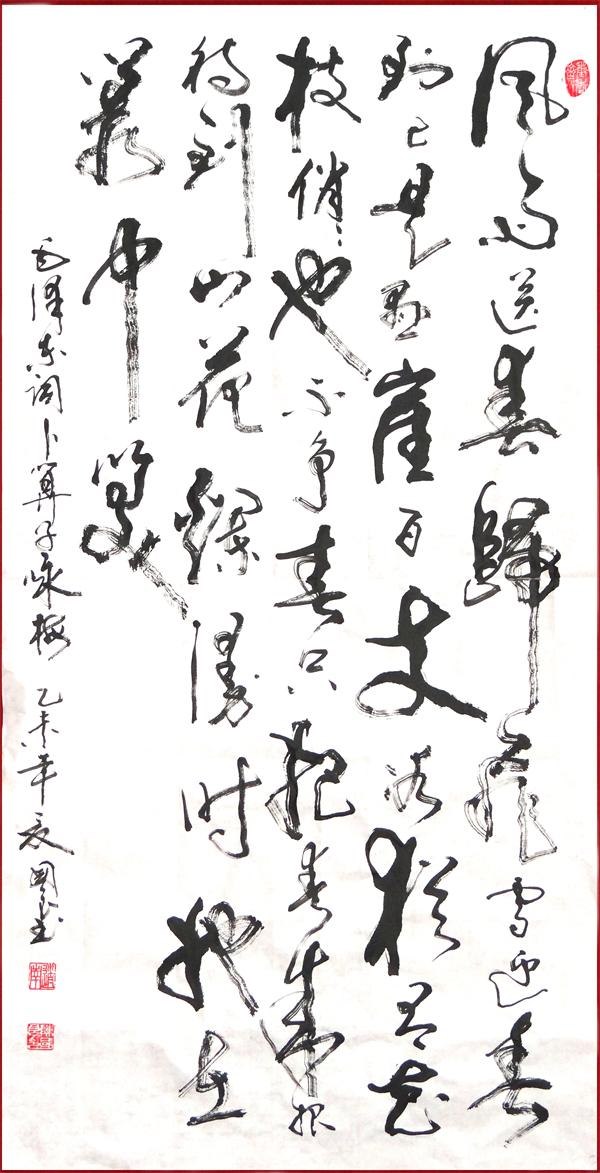 风雨送春歸飛雪迎春
到已是悬崖百丈冰犹有花
枝俏〻也不争春只把春来报
待到山花爛漫时她在
叢中笑
毛泽东词卜算子咏梅 乙未年夏國